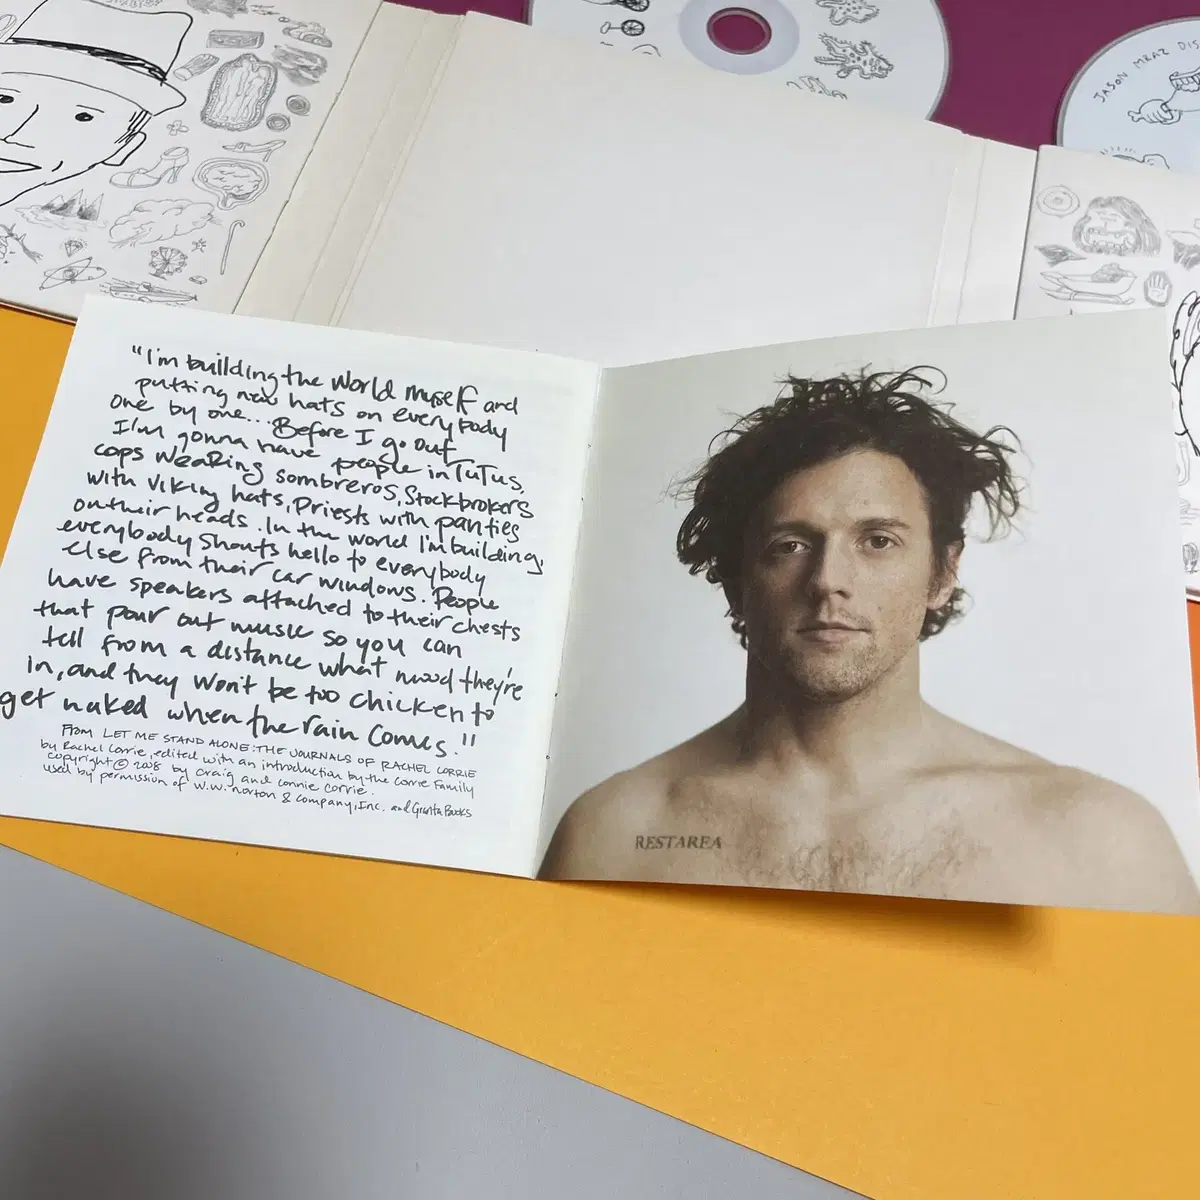 JASON MRAZ DIS
"I'm building the world myself and
putting new hats on everybody
one by one... Before I go out
I'm gonna have people in TuTus,
cops weaRing sombreros, Stockbrokers
with viking hats, Priests with panties
on their heads. In the world I'm building,
everybody Shouts hello to everybody
else from their car windows. People
have speakers attached to their chests
that pour out music so you can
tell from a distance what mood they're
in, and they won't be too chicken to
get naked when the rain comes."
From LET ME STAND ALONE: THE JOURNALS OF RACHEL CORRIE
by Rachel Corrie, edited with an introduction by the Corrie Family
copyright © 2008 by Craig and Connie Corrie.
used by permission of W.W. Norton & Company, Inc. and Granta Books
RESTAREA